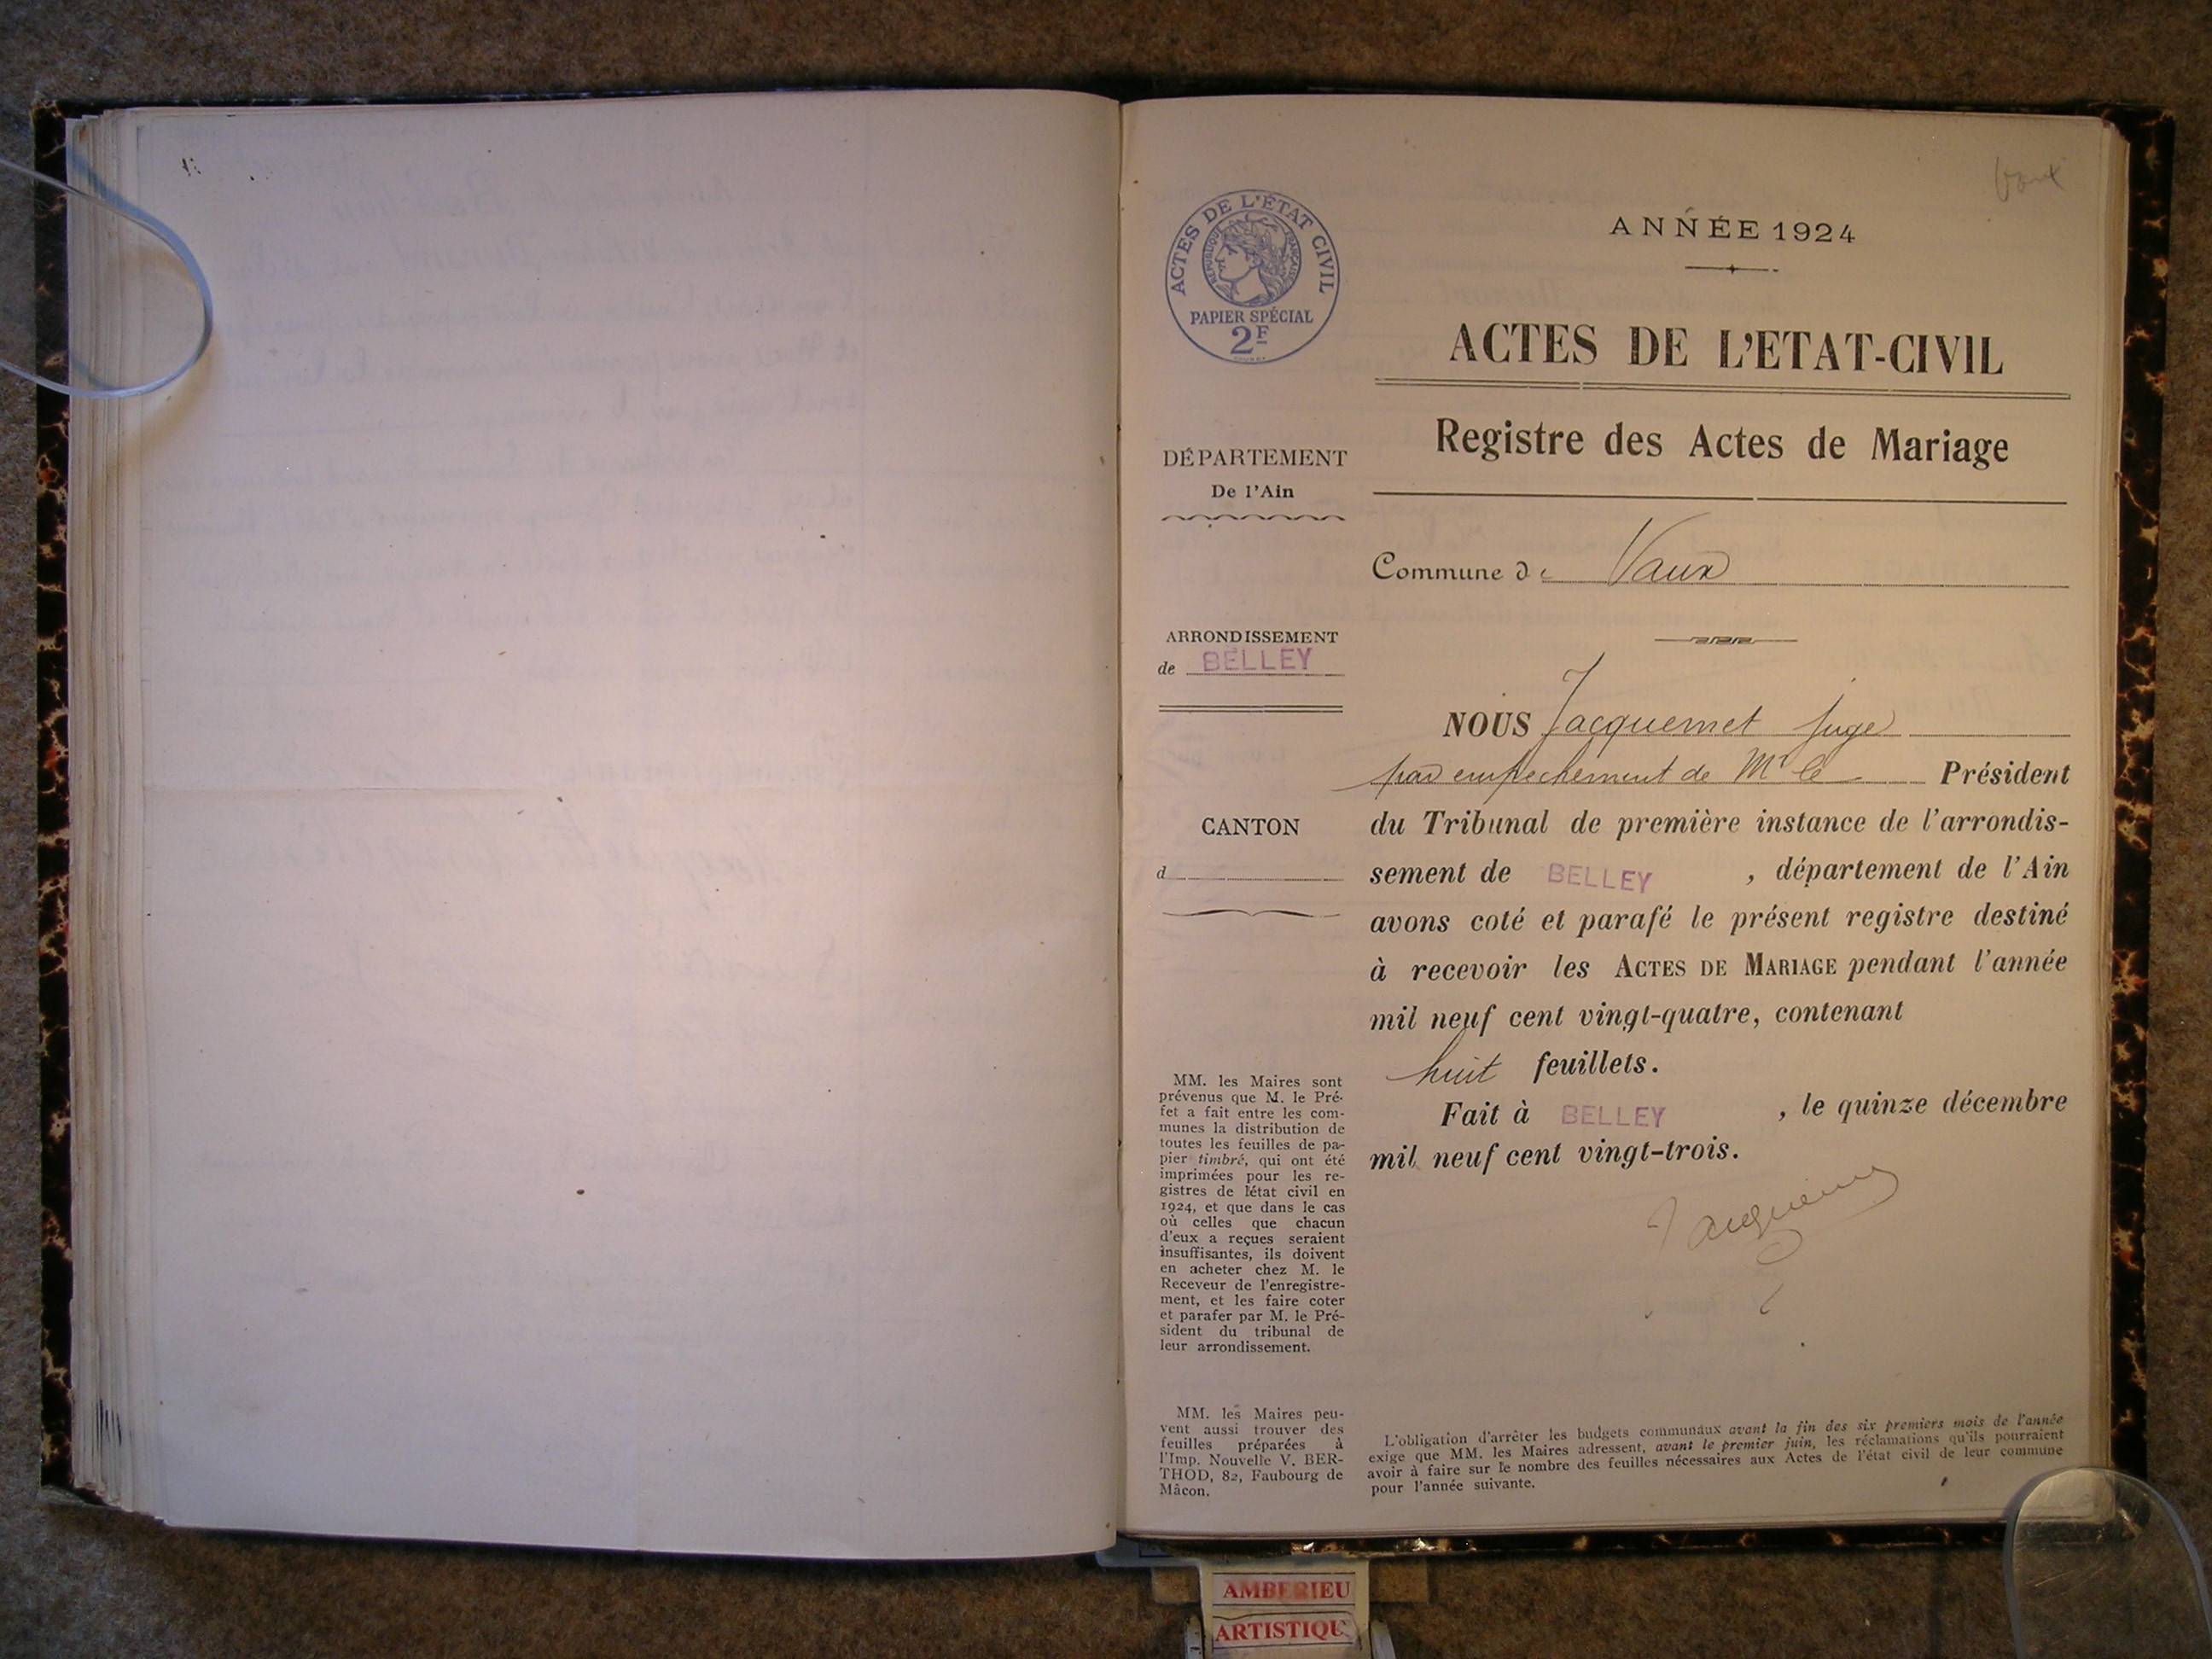 Vaux
ANNÉE 1924
ACTES DE L'ÉTAT CIVIL
RÉPUBLIQUE FRANÇAISE
PAPIER SPÉCIAL
2F
ACTES DE L'ETAT-CIVIL
Registre des Actes de Mariage
DÉPARTEMENT
De l'Ain
Commune de Vaux
ARRONDISSEMENT
de BELLEY
CANTON
d
NOUS Jacquemet Juge
par empechement de Mr le Président
du Tribunal de première instance de l'arrondis-
sement de BELLEY , département de l'Ain
avons coté et parafé le présent registre destiné
à recevoir les ACTES DE MARIAGE pendant l'année
mil neuf cent vingt-quatre, contenant
huit feuillets.
Fait à BELLEY , le quinze décembre
mil neuf cent vingt-trois.
MM. les Maires sont
prévenus que M. le Pré-
fet a fait entre les com-
munes la distribution de
toutes les feuilles de pa-
pier timbré, qui ont été
imprimées pour les re-
gistres de l'état civil en
1924, et que dans le cas
où celles que chacun
d'eux a reçues seraient
insuffisantes, ils doivent
en acheter chez M. le
Receveur de l'enregistre-
ment, et les faire coter
et parafer par M. le Pré-
sident du tribunal de
leur arrondissement.
MM. les Maires peu-
vent aussi trouver des
feuilles préparées à
l'Imp. Nouvelle V. BER-
THOD, 82, Faubourg de
Mâcon.
L'obligation d'arrêter les budgets communaux avant la fin des six premiers mois de l'année
exige que MM. les Maires adressent, avant le premier juin, les réclamations qu'ils pourraient
avoir à faire sur le nombre des feuilles nécessaires aux Actes de l'état civil de leur commune
pour l'année suivante.
AMBERIEU
ARTISTIQU